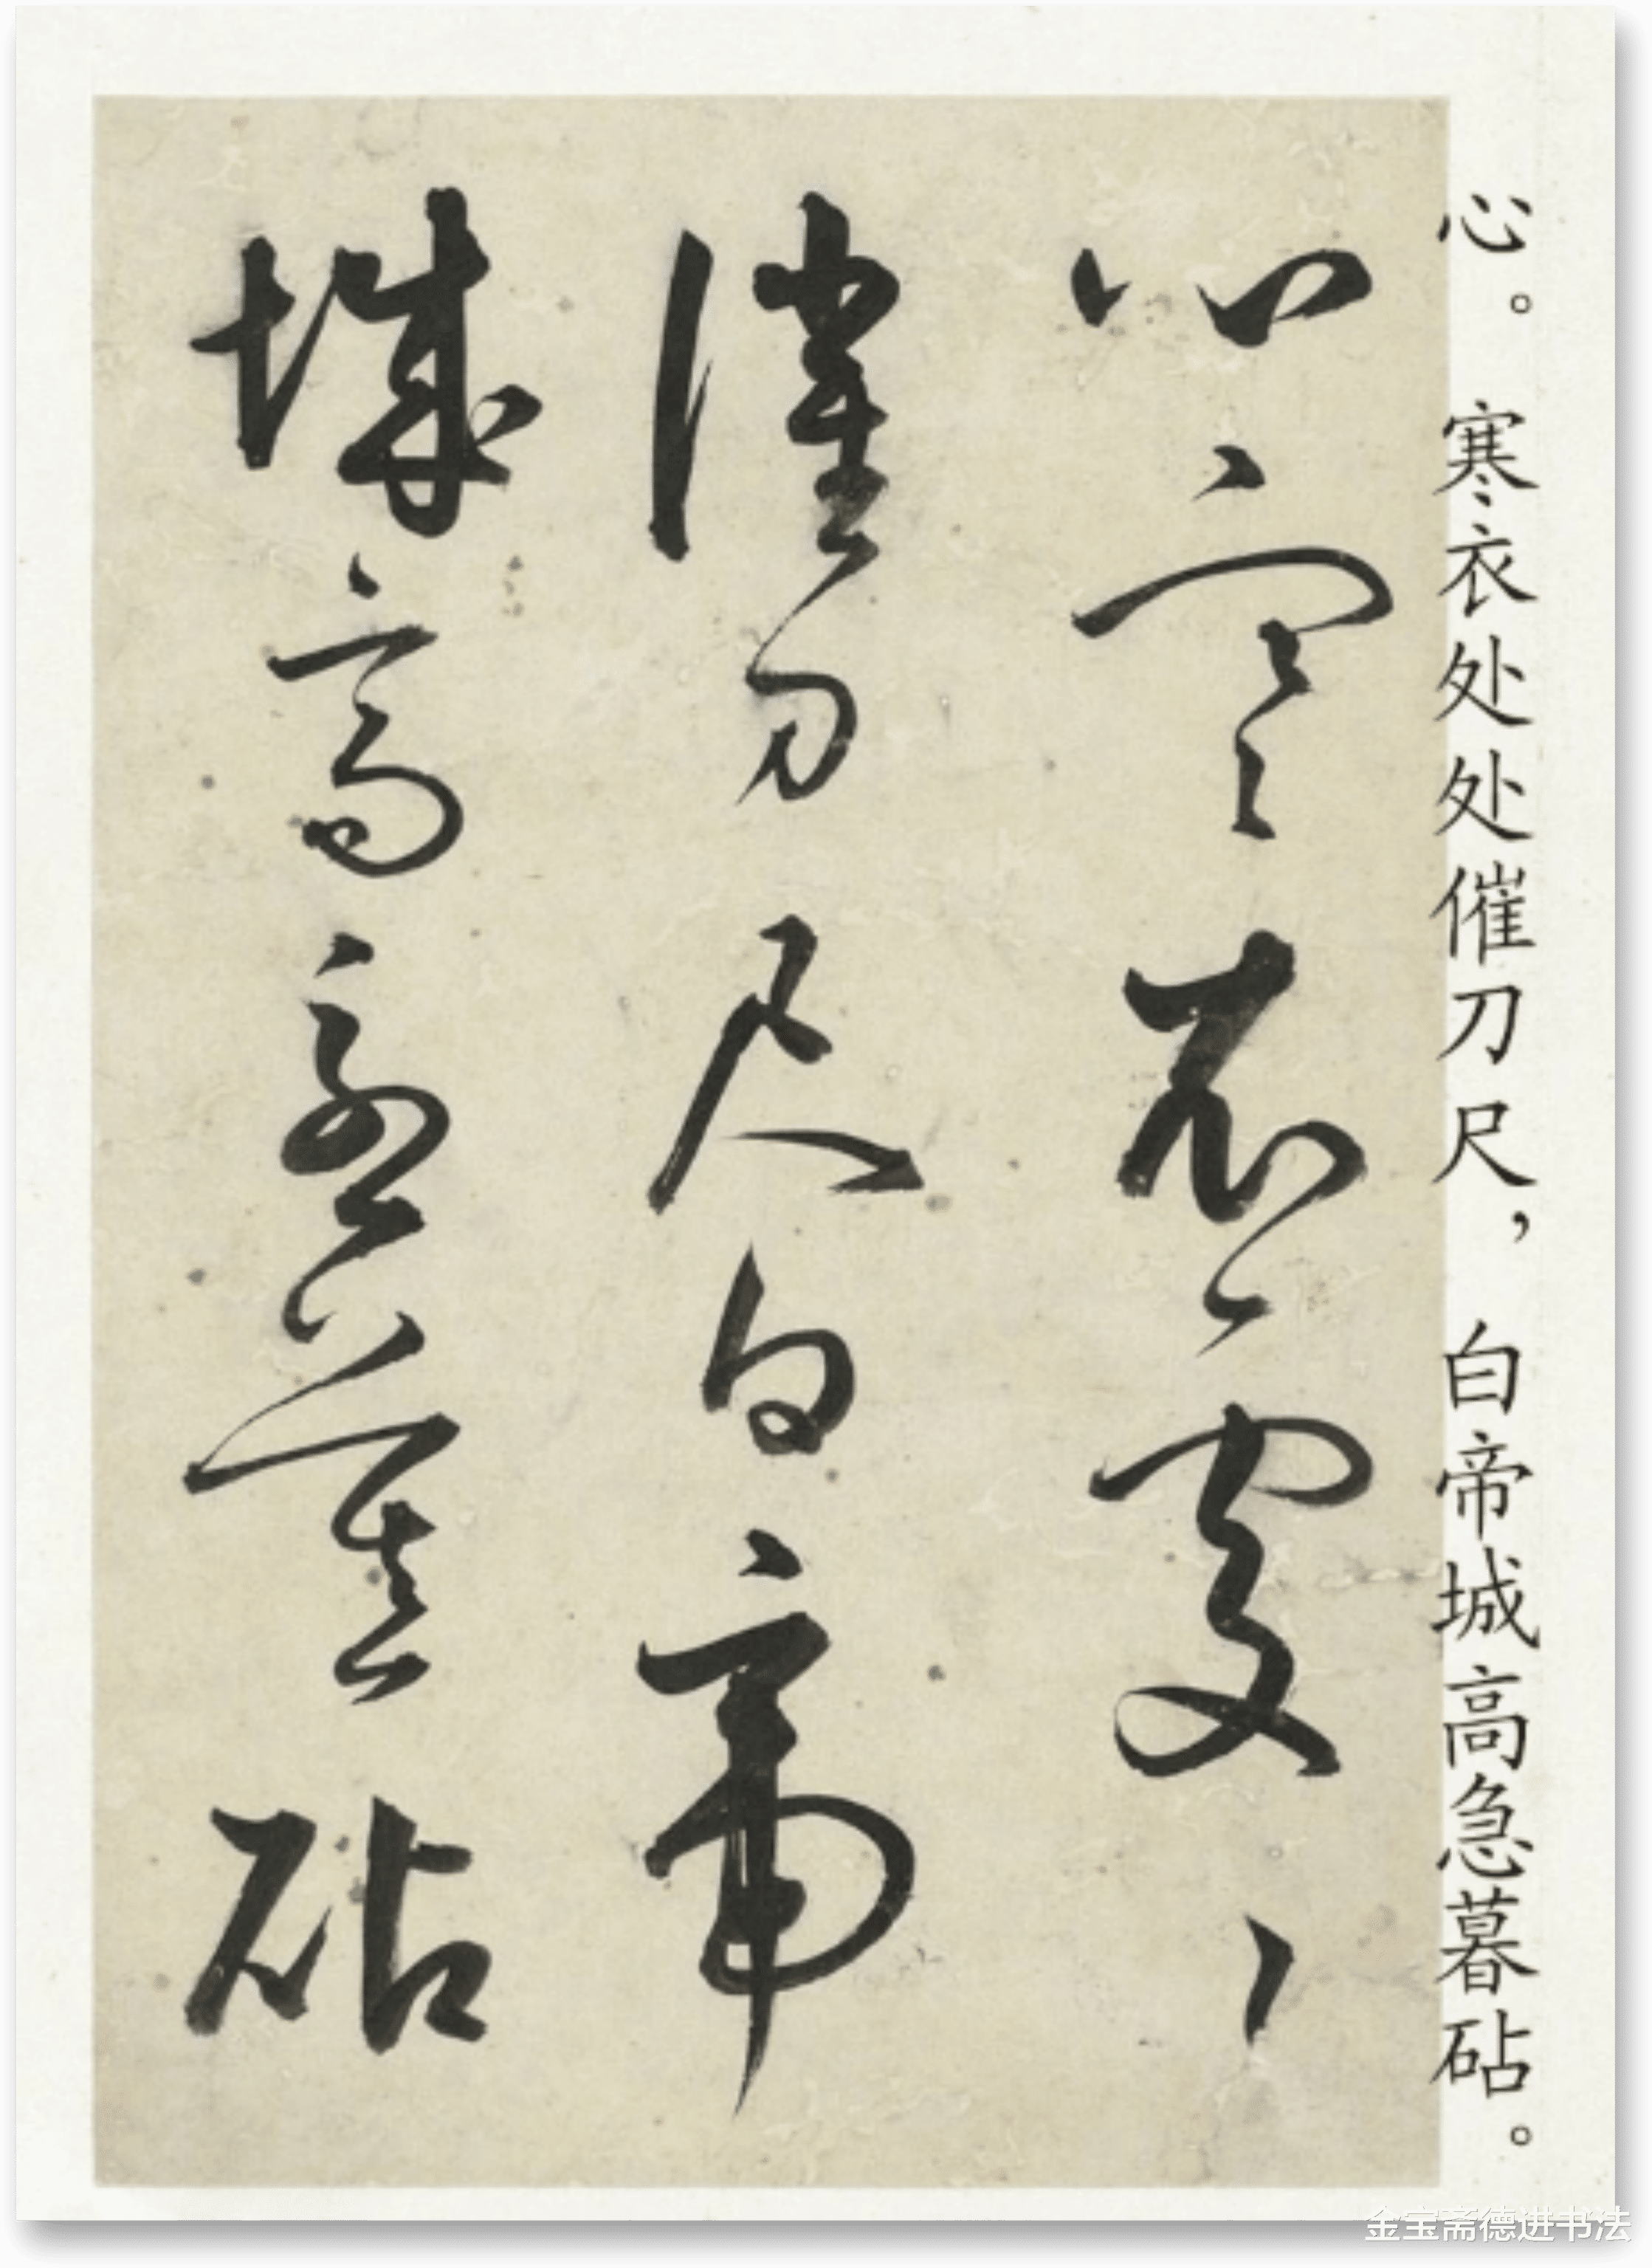 心。寒衣处处催刀尺，白帝城高急暮砧。
心寒衣處〻
催刀尺白帝
城高急暮砧
金宝斋德进书法